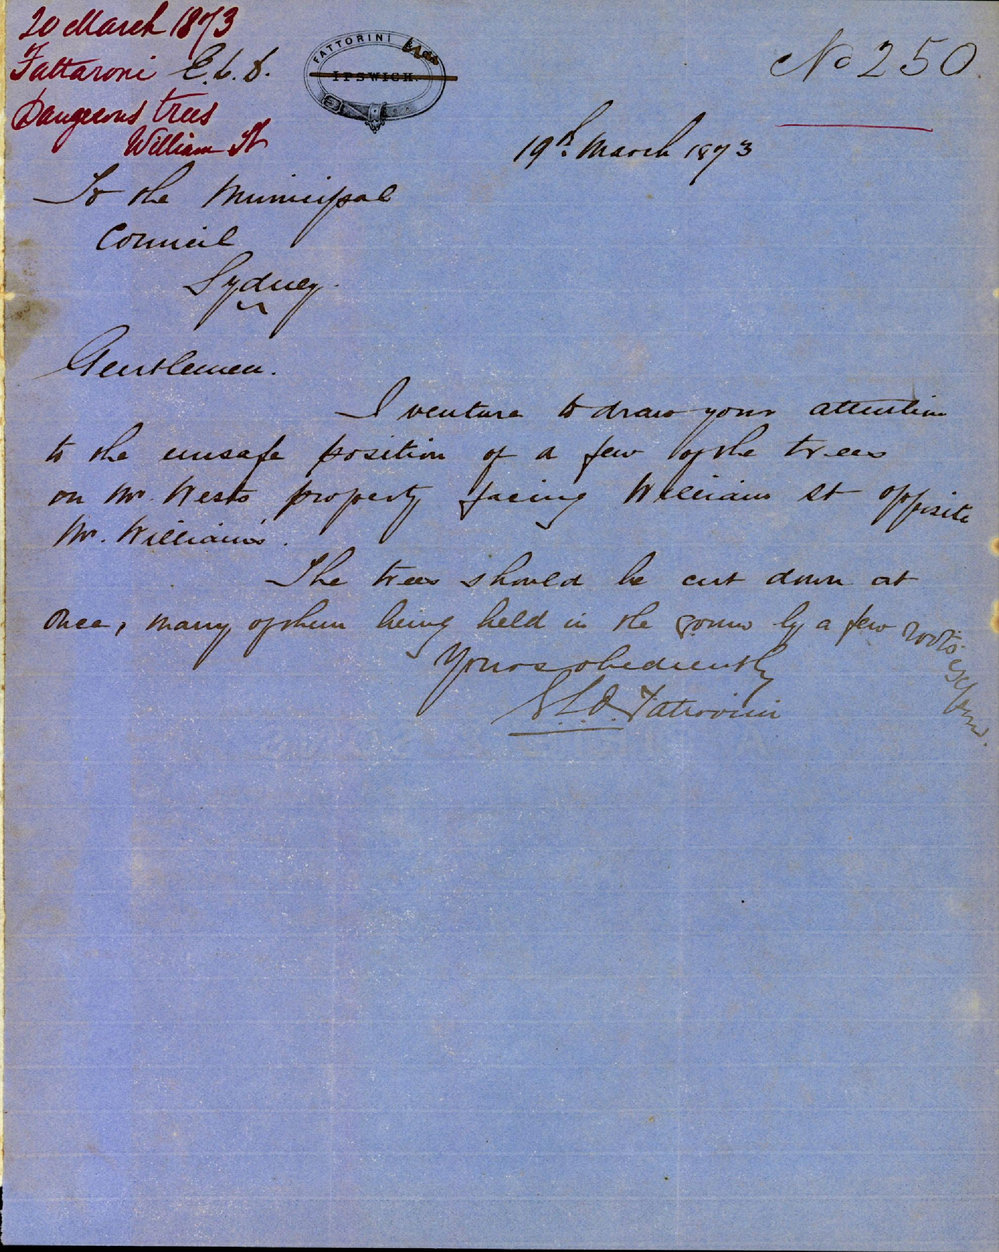 20 March 1873
Fattaroni E. L. D.
Dangerous trees
William St
FATTORINI
IPSWICH
No 250.
19th. March 1873
To the Municipal
Council
Sydney.
Gentlemen.
I venture to draw your attention
to the unsafe position of a few of the trees
on Mr. Wests property facing William St opposite
Mr. Williams'.
The trees should be cut down at
once, many of them being held in the by a few roots
Yours obediently
Fattorini